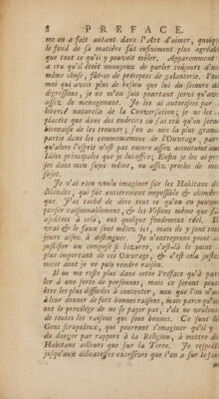 8 PREFACE.
me en a fait autant dans l'Art d'aimer, quoique
le fond de sa matiére fût infiniment plus agréable
que tout ce qu'il y pouvoit mêler. Apparemment il
a cru qu'il étoit ennuyeux de parler toujours d'une
même chose, fût-ce de préceptes de galanterie. Pour
moi qui avois plus de besoin que lui du secours des
digressions, je ne m'en suis pourtant servi qu'avec
assez de ménagement. Je les ai autorisées par la
liberté naturelle de la Conversation; je ne les ai
placées que dans des endroits où j'ai cru qu'on seroit
bien-aise de les trouver; j'en ai mis la plus grande
partie dans les commencemens de l'Ouvrage, parce
qu'alors l'esprit n'est pas encore assez accoutumé aux
Idées principales que je lui offre; Enfin je les ai prises
dans mon sujet même, ou assez proche de mon
sujet.
Je n'ai rien voulu imaginer sur les Habitans des
Mondes, qui fût entierement impossible & chimérique.
J'ai tâché de dire tout ce qu'on en pouvoit
penser raisonnablement, & les Visions même que j'ai
ajoûtées à cela, ont quelque fondement réel. Le
vrai & le faux sont mêlez ici, mais ils y sont toujours
aisez à distinguer. Je n'entreprens point de
justifier un composé si bizarre, c'est-là le point le
plus important de cet Ouvrage, & c'est cela justement
dont je ne puis rendre raison.
Il ne me reste plus dans cette Préface qu'à parler
à une sorte de personnes, mais ce seront peut-être
les plus difficiles à contenter, non que l'on n'ait
à leur donner de fort bonnes raisons, mais parce qu'ils
ont le privilege de ne se payer pas, s'ils ne veulent,
de toutes les raisons qui sont bonnes. Ce sont les
Gens scrupuleux, qui pourront s'imaginer qu'il y a
du danger par rapport à la Religion, à mettre des
Habitans ailleurs que sur la Terre. Je respecte
jusqu'aux délicatesses excessives que l'on a sur le fait